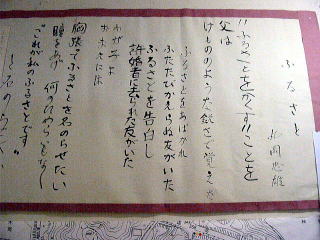 ふるさと
丸岡忠雄
"ふるさとをかくす"ことを
父は
けもののような鋭さで覚えた
ふるさとをあばかれ
ふたたびかえらぬ友がいた
ふるさとを告白し
許婚者に去られた友がいた
わが子よ
おまえには
胸張ってふるさとを名のらせたい
瞳をあげ何のためらいもなく
"これが私のふるさとです"
と名のらせ